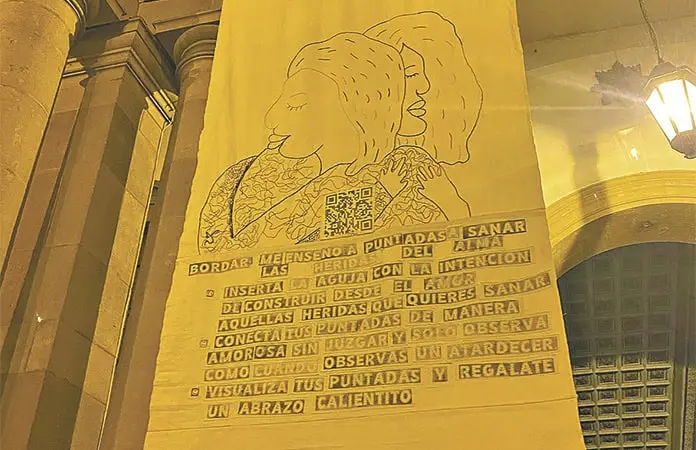 BORDAR: ME ENSEÑO A PUNTADAS A SANAR
LAS HERIDAS DEL ALMA
INSERTA LA AGUJA CON LA INTENCION
DE CONSTRUIR DESDE EL AMOR
AQUELLAS HERIDAS QUE QUIERES SANAR
CONECTA TUS PUNTADAS DE MANERA
AMOROSA SIN JUZGAR Y SOLO OBSERVA
COMO CUANDO OBSERVAS UN ATARDECER
VISUALIZA TUS PUNTADAS Y REGALATE
UN ABRAZO CALIENTITO